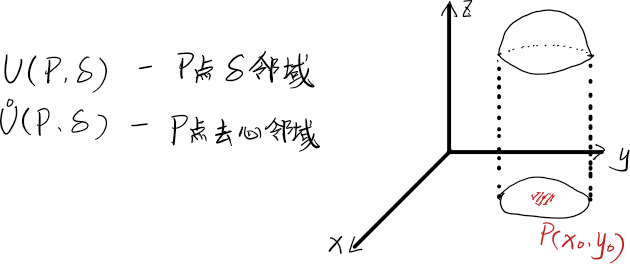 U(P,δ) — P点δ邻域
Ů(P,δ) — P点去心邻域
z
y
x
P(x₀,y₀)